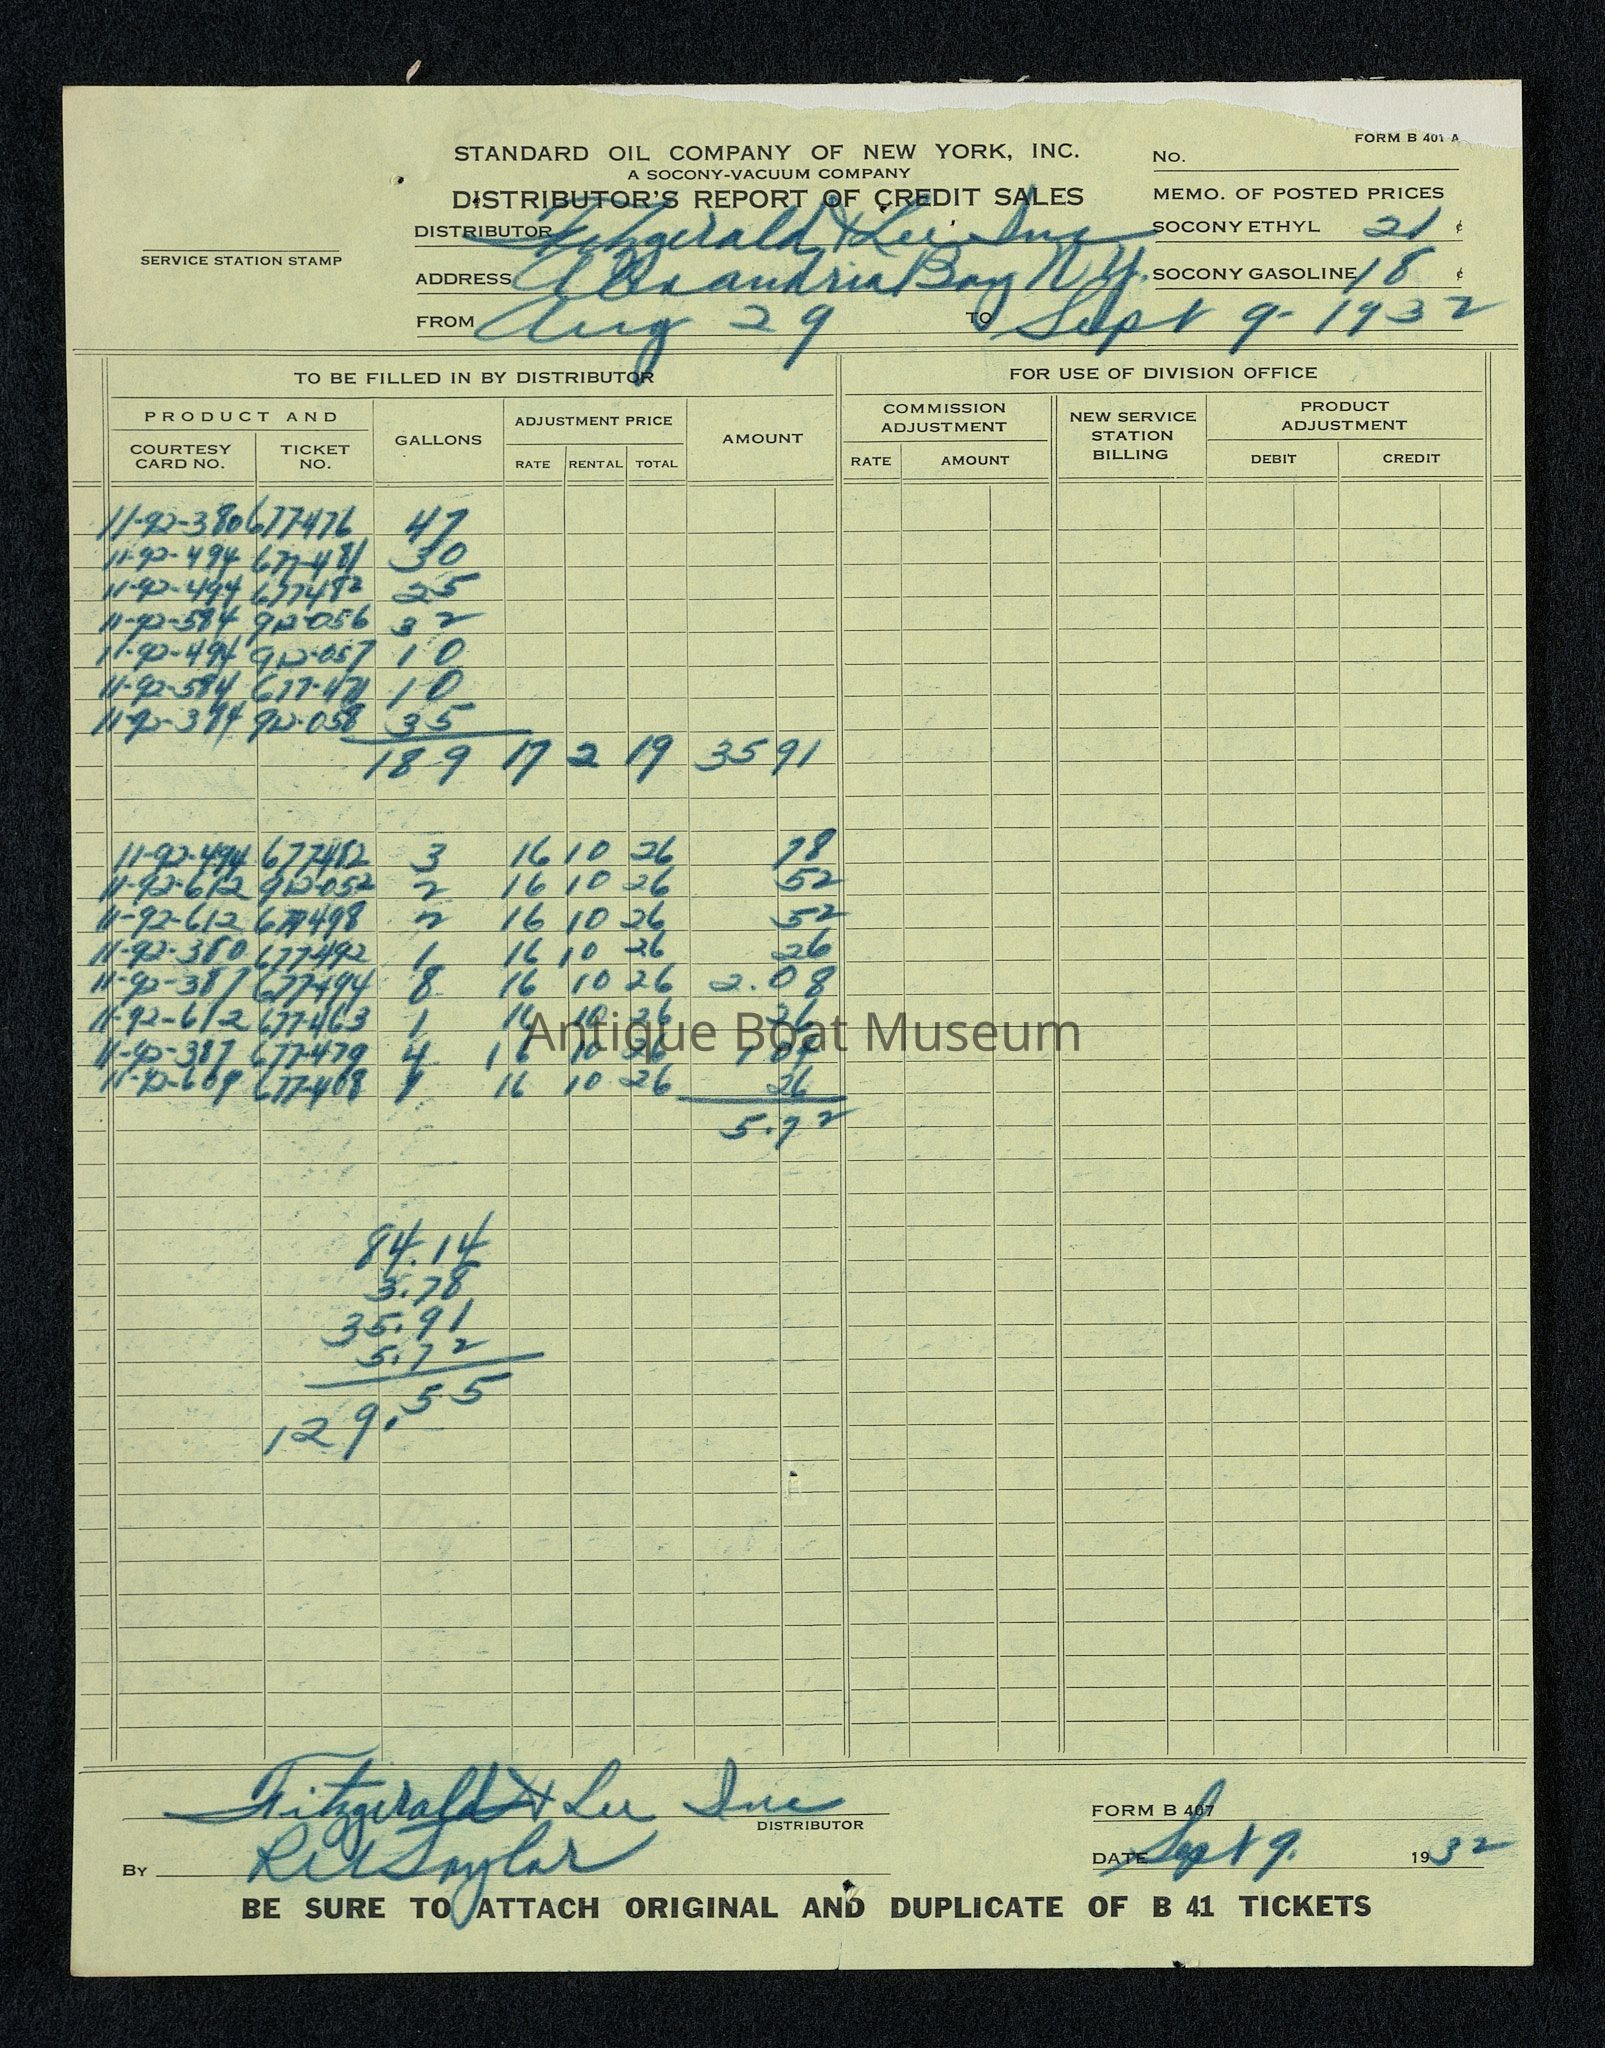 FORM B 401 A
STANDARD OIL COMPANY OF NEW YORK, INC.
No.
A SOCONY-VACUUM COMPANY
DISTRIBUTOR'S REPORT OF CREDIT SALES
MEMO. OF POSTED PRICES
DISTRIBUTOR Fitzgerald & Lee Inc
SOCONY ETHYL 21 ¢
SERVICE STATION STAMP
ADDRESS Alexandria Bay N.Y.
SOCONY GASOLINE 18 ¢
FROM Aug 29 TO Sept 9-1932
TO BE FILLED IN BY DISTRIBUTOR
FOR USE OF DIVISION OFFICE
PRODUCT AND
COURTESY CARD NO.
TICKET NO.
GALLONS
ADJUSTMENT PRICE
RATE RENTAL TOTAL
AMOUNT
COMMISSION ADJUSTMENT
RATE AMOUNT
NEW SERVICE STATION BILLING
PRODUCT ADJUSTMENT
DEBIT CREDIT
11-92-380 677476 47
11-92-494 677-481 30
11-92-494 677482 25
11-92-584 912-056 32
11-92-494 912-057 10
11-92-584 677-471 10
11-92-384 912-058 35
189 17 2 19 35 91
11-92-494 677482 3 16 10 26 78
11-92-612 912-052 2 16 10 26 52
11-92-612 677498 2 16 10 26 52
11-92-380 677492 1 16 10 26 26
11-92-387 677494 8 16 10 26 2.08
11-92-612 677-463 1 16 10 26 26
11-92-387 677-479 4 16 10 26 1 04
11-92-609 677-468 1 16 10 26 26
5.72
84.14
3.78
35.91
5.72
129.55
Antique Boat Museum
Fitzgerald & Lee Inc
DISTRIBUTOR
FORM B 407
BY
DATE Sept 9. 1932
BE SURE TO ATTACH ORIGINAL AND DUPLICATE OF B 41 TICKETS